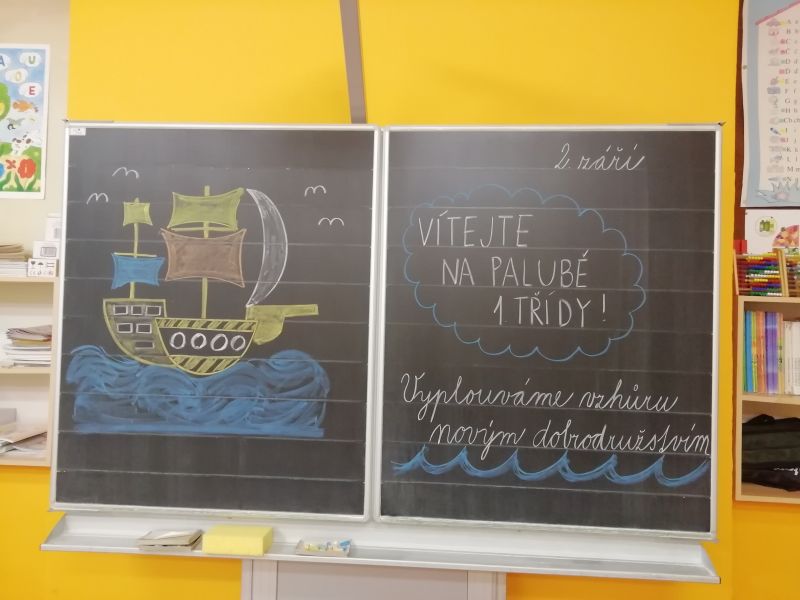 2. září
VÍTEJTE
NA PALUBĚ
1. TŘÍDY!
Vyplouváme vzhůru
novým dobrodružstvím